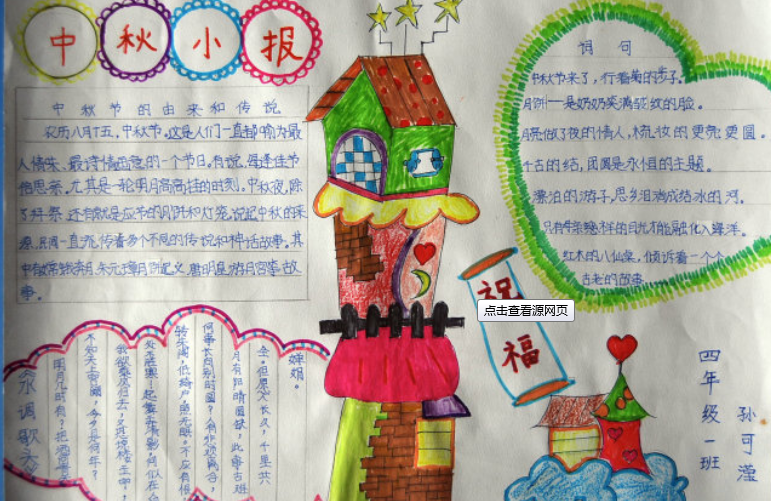 中秋小报
中秋节的由来和传说
农历八月十五,中秋节。这是人们一直都喻为最
人情味、最诗情画意的一个节日。有说,每逢佳节
倍思亲。尤其是一轮明月高高挂的时刻,中秋夜,除
了拜祭,还有就是应节的月饼和灯笼。说起中秋的来
源,民间一直流传着多个不同的传说和神话故事。其
中就常嫦娥奔月、朱元璋月饼起义、唐明皇游月宫等故
事。
词句
中秋节来了,行着菊的步子。
月饼—是奶奶笑满皱纹的脸。
月亮做了夜的情人,梳妆的更亮更圆。
千古的结,团圆是永恒的主题。
漂泊的游子,思乡泪淌成结冰的河。
只有慈祥的目光才能融化入海洋。
红木的八仙桌,倾诉着一个个
古老的故事
祝福
点击查看源网页
水调歌头
明月几时有?把酒问
不知天上宫阙,今夕是何年?
我欲乘风归去,又恐琼楼玉宇,
起舞弄清影,何似在
转朱阁,低绮户,照无眠。不应有恨,
何事长向别时圆?人有悲欢离合,
月有阴晴圆缺,此事古难
全。但愿人长久,千里共
婵娟。
四年级一班
孙可滢